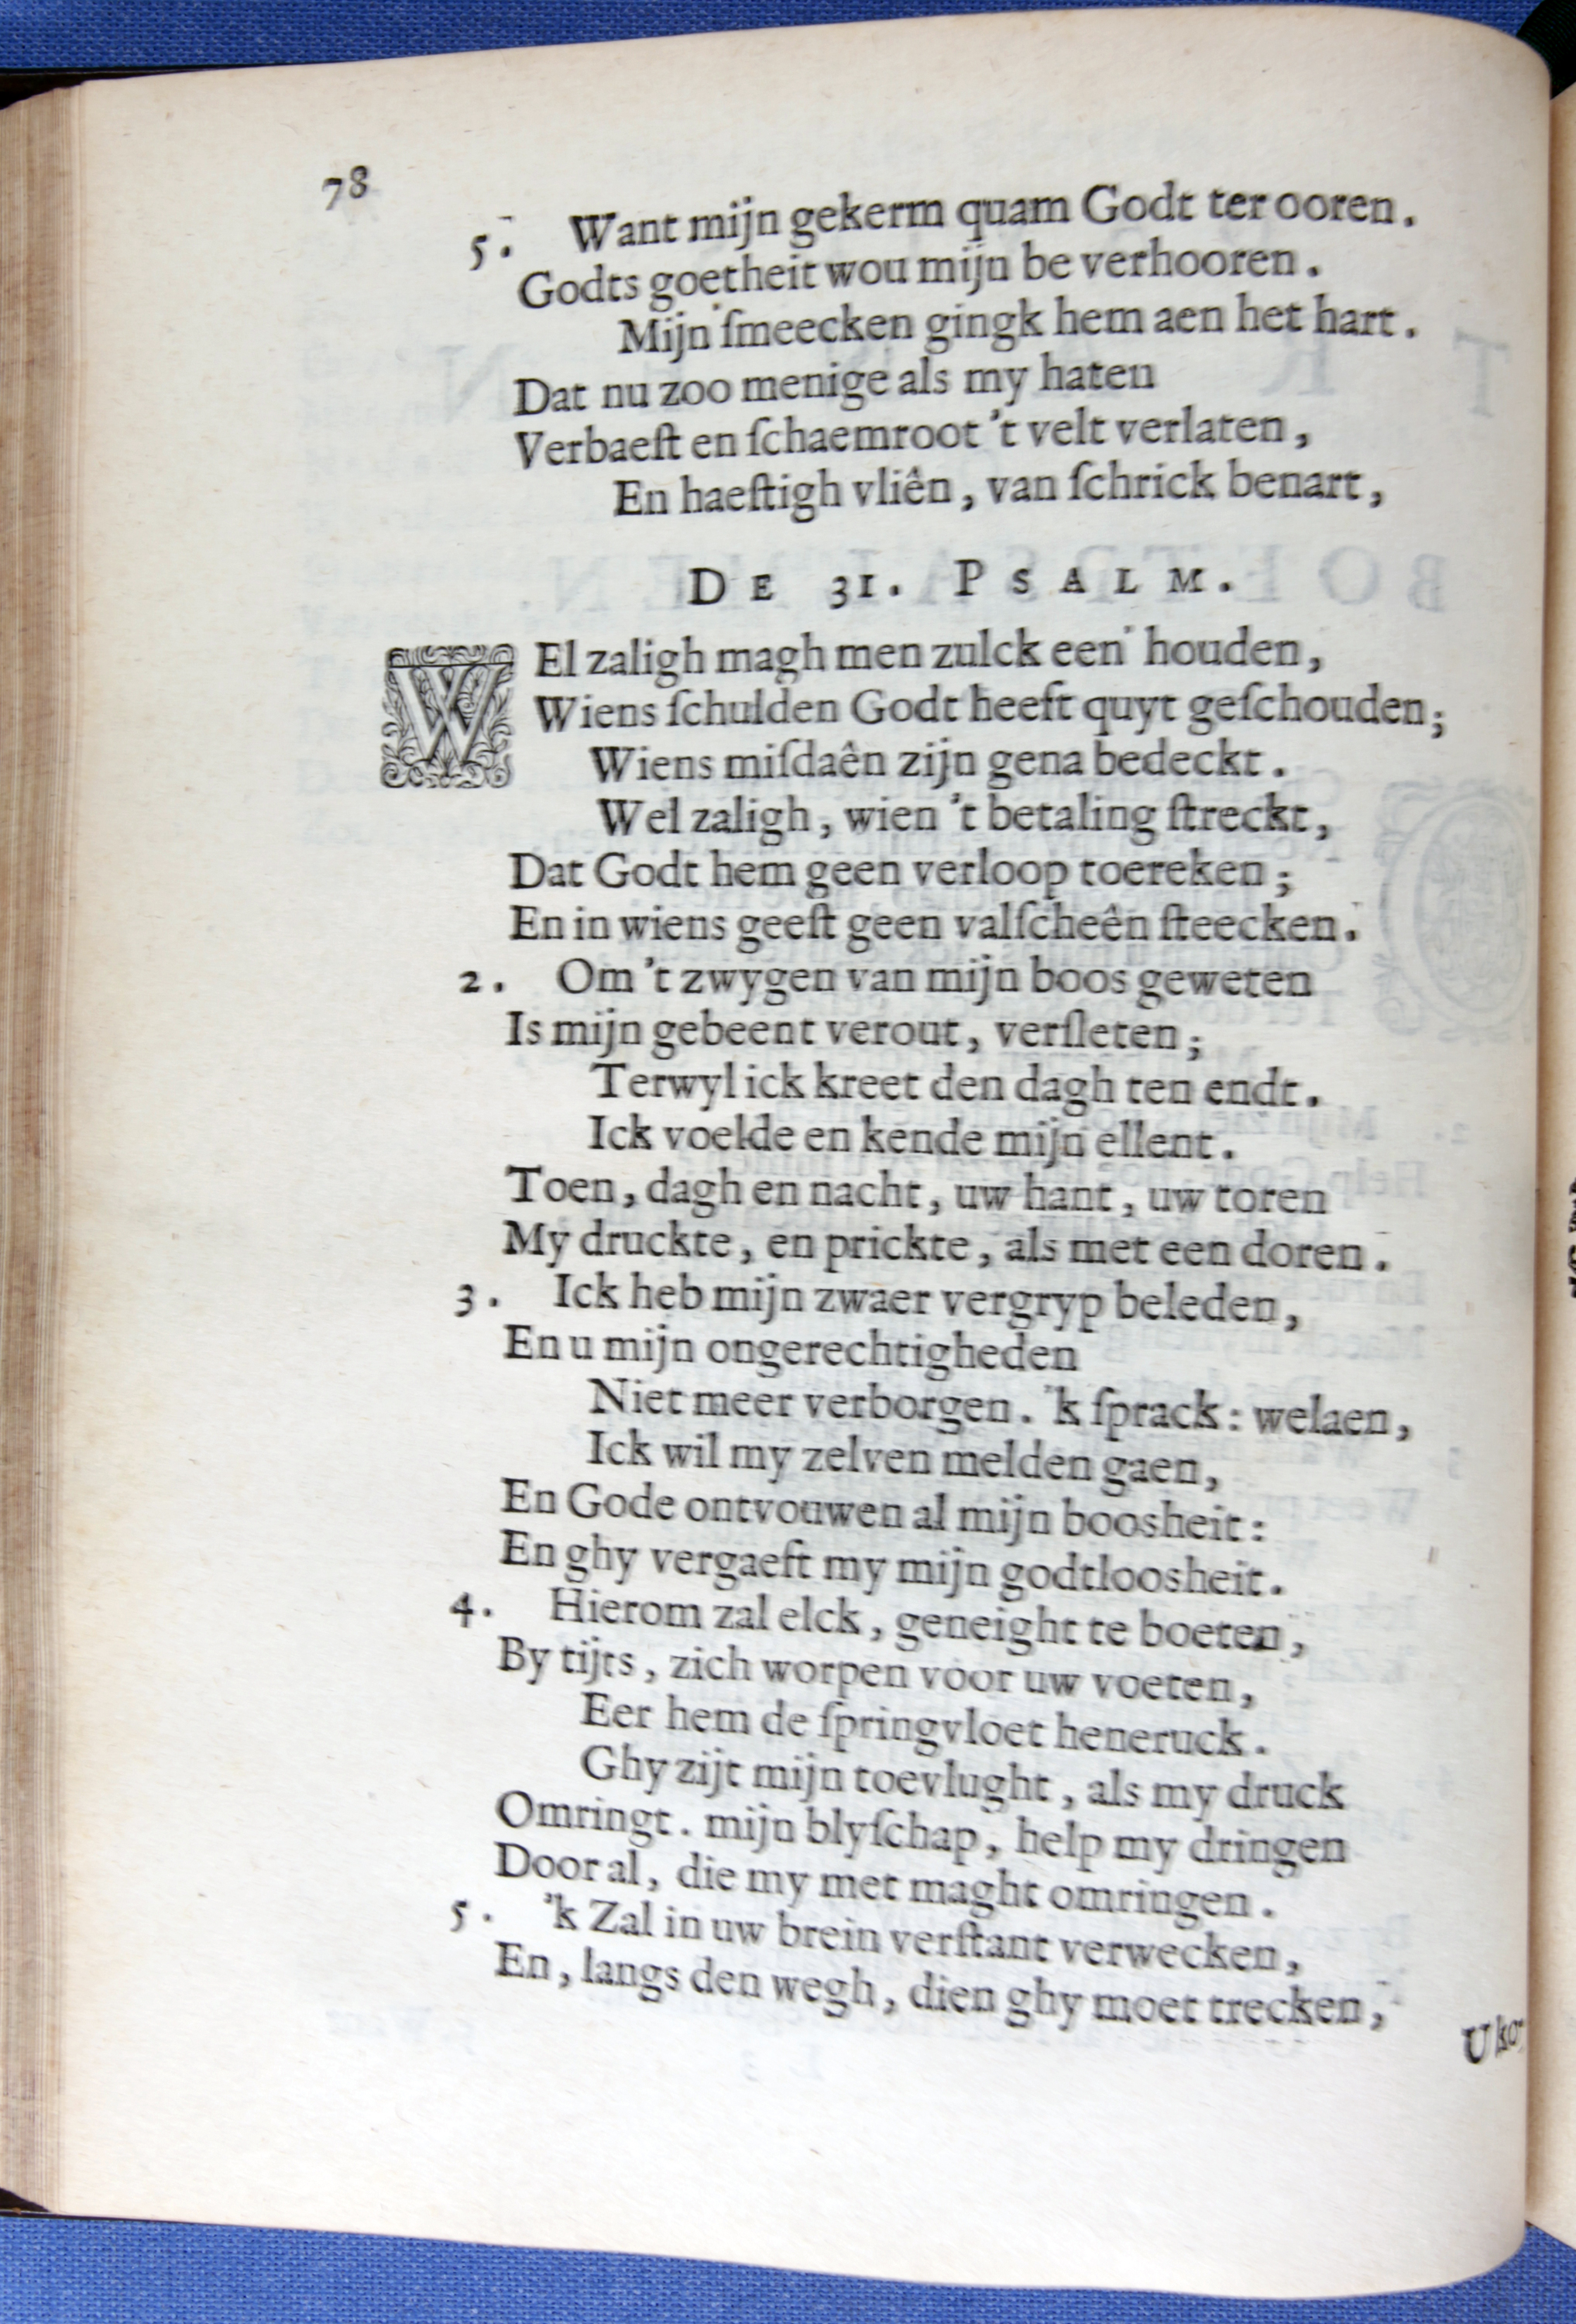 78
5. Want mijn gekerm quam Godt ter ooren.
Godts goetheit wou mijn be verhooren.
Mijn ſmeecken gingk hem aen het hart.
Dat nu zoo menige als my haten
Verbaeſt en ſchaemroot 't velt verlaten,
En haeſtigh vliên, van ſchrick benart,
DE 31. PSALM.
WEl zaligh magh men zulck een' houden,
Wiens ſchulden Godt heeft quyt geſchouden;
Wiens miſdaên zijn gena bedeckt.
Wel zaligh, wien 't betaling ſtreckt,
Dat Godt hem geen verloop toereken;
En in wiens geeſt geen valſcheên ſteecken.
2. Om 't zwygen van mijn boos geweten
Is mijn gebeent verout, verſleten;
Terwyl ick kreet den dagh ten endt.
Ick voelde en kende mijn ellent.
Toen, dagh en nacht, uw hant, uw toren
My druckte, en prickte, als met een doren.
3. Ick heb mijn zwaer vergryp beleden,
En u mijn ongerechtigheden
Niet meer verborgen. 'k ſprack: welaen,
Ick wil my zelven melden gaen,
En Gode ontvouwen al mijn boosheit:
En ghy vergaeft my mijn godtloosheit.
4. Hierom zal elck, geneight te boeten,
By tijts, zich worpen voor uw voeten,
Eer hem de ſpringvloet heneruck.
Ghy zijt mijn toevlught, als my druck
Omringt. mijn blyſchap, help my dringen
Door al, die my met maght omringen.
5. 'k Zal in uw brein verſtant verwecken,
En, langs den wegh, dien ghy moet trecken,